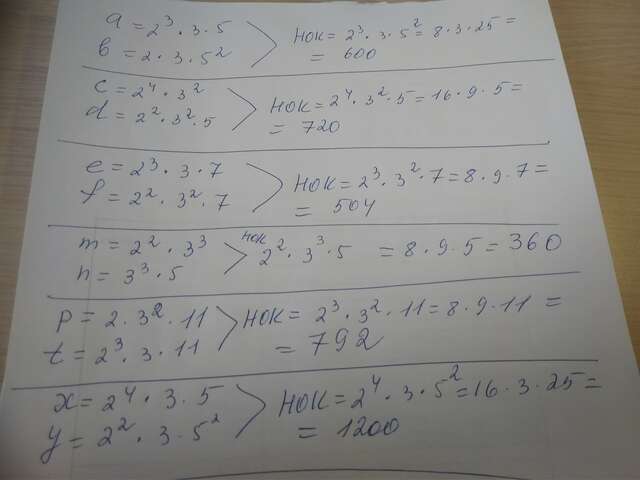 a = 2³ · 3 · 5
b = 2 · 3 · 5²
НОК = 2³ · 3 · 5² = 8 · 3 · 25 =
= 600
c = 2⁴ · 3²
d = 2² · 3² · 5
НОК = 2⁴ · 3² · 5 = 16 · 9 · 5 =
= 720
e = 2³ · 3 · 7
f = 2² · 3² · 7
НОК = 2³ · 3² · 7 = 8 · 9 · 7 =
= 504
m = 2² · 3³
n = 3³ · 5
НОК 2² · 3³ · 5 = 8 · 9 · 5 = 360
p = 2 · 3² · 11
t = 2³ · 3 · 11
НОК = 2³ · 3² · 11 = 8 · 9 · 11 =
= 792
x = 2⁴ · 3 · 5
y = 2² · 3 · 5²
НОК = 2⁴ · 3 · 5² = 16 · 3 · 25 =
= 1200